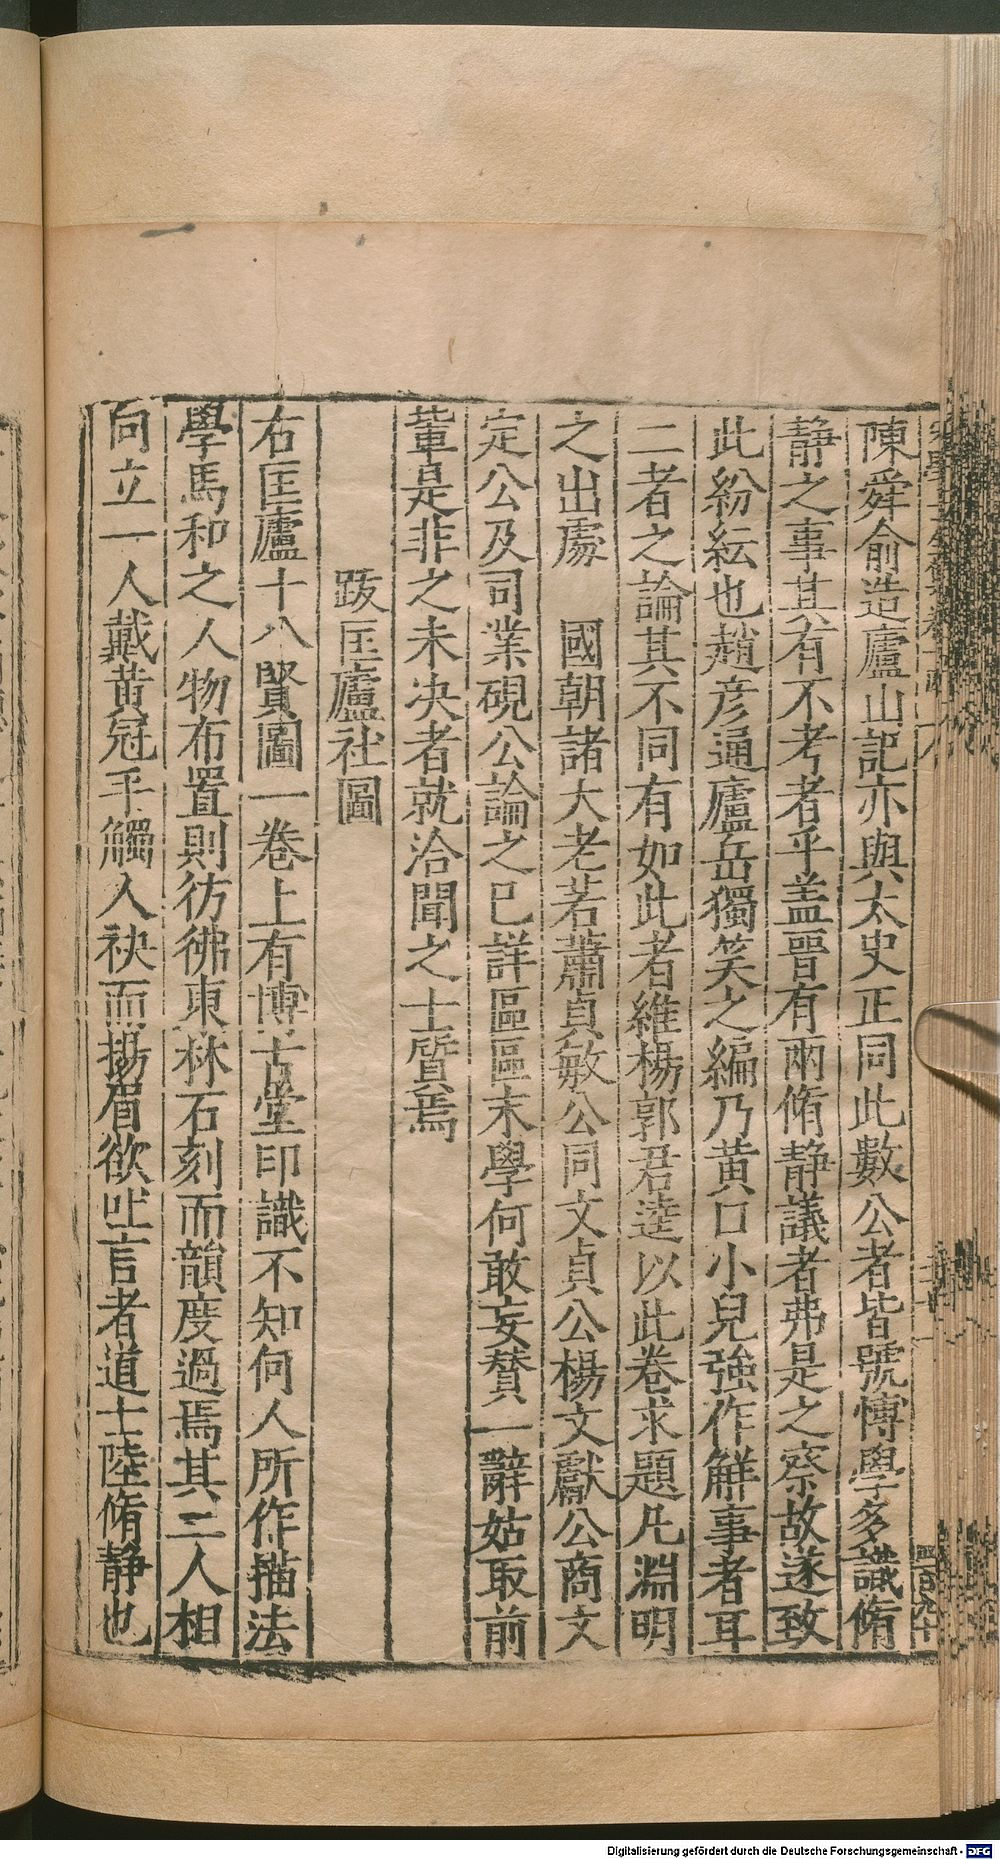 陳舜俞造廬山記亦與太史正同此數公者皆號博學多識脩
靜之事其有不考者乎盖晉有兩脩静議者弗是之察故遂致
此紛紜也趙彦通廬岳獨笑之編乃黄口小兒強作觧事者耳
二者之論其不同有如此者維楊郭君逵以此卷求題凡淵明
之出處　國朝諸大老若蕭貞敏公同文貞公楊文獻公商文
定公及司業硯公論之已詳區區末學何敢妄賛一辭姑取前
軰是非之未决者就洽聞之士質焉
跋匡廬社圖
右匡廬十八賢圖一卷上有博古堂印識不知何人所作描法
學馬和之人物布置則彷彿東林石刻而韻度過焉其二人相
向立一人戴黄冠手觸入袂而揚眉欲吐言者道士陸脩静也
Digitalisierung gefördert durch die Deutsche Forschungsgemeinschaft - DFG